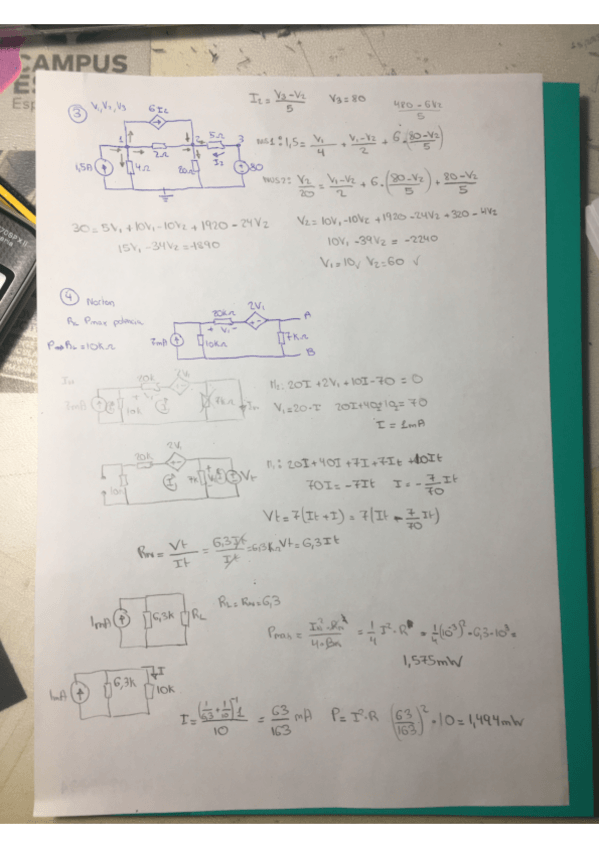 CAMPUS
③ V₁, V₂, V₃
I₂ = (V₃-V₂)/5    V₃=80    (480-6V₂)/5
6I₂
1  2Ω  2  5Ω  3
I₂
1,5A  4Ω  20Ω  80
nus1: 1,5 = V₁/4 + (V₁-V₂)/2 + 6·(80-V₂)/5
nus2: V₂/20 = (V₁-V₂)/2 + 6·(80-V₂)/5 + (80-V₂)/5
30 = 5V₁ + 10V₁ - 10V₂ + 1920 - 24V₂
V₂ = 10V₁ - 10V₂ + 1920 - 24V₂ + 320 - 4V₂
15V₁ - 34V₂ = -1890
10V₁ - 39V₂ = -2240
V₁=10√ V₂=60 √
④ Norton
RL Pmax potencia
RL=10KΩ
20kΩ  2V₁  A
+ V₁ -
7mA  10kΩ  7kΩ
B
20k  2V₁
7mA  10k  7kΩ  In
20I + 2V₁ + 10I - 70 = 0
V₁ = 20·I   20I + 40I + 10I = 70
I = 1mA
20k  2V₁
10k  7k  Vt
20I + 40I + 7I + 7It + 10It
70I = -7It   I = -7/70 It
Vt = 7(It + I) = 7(It - 7/70 It)
RN = Vt/It = 6,3It/It = 6,3k   Vt = 6,3It
1mA  6,3K  RL
RL = RN = 6,3
Pmax = (In²·Rn)/4·Rn = 1/4 I²·R = 1/4 (10⁻³)²·6,3·10³ =
1,575mW
1mA  6,3K  I  10K
I = (1/6,3 + 1/10)⁻¹·1 / 10 = 63/163 mA   P = I²·R   (63/163)²·10 = 1,494mW